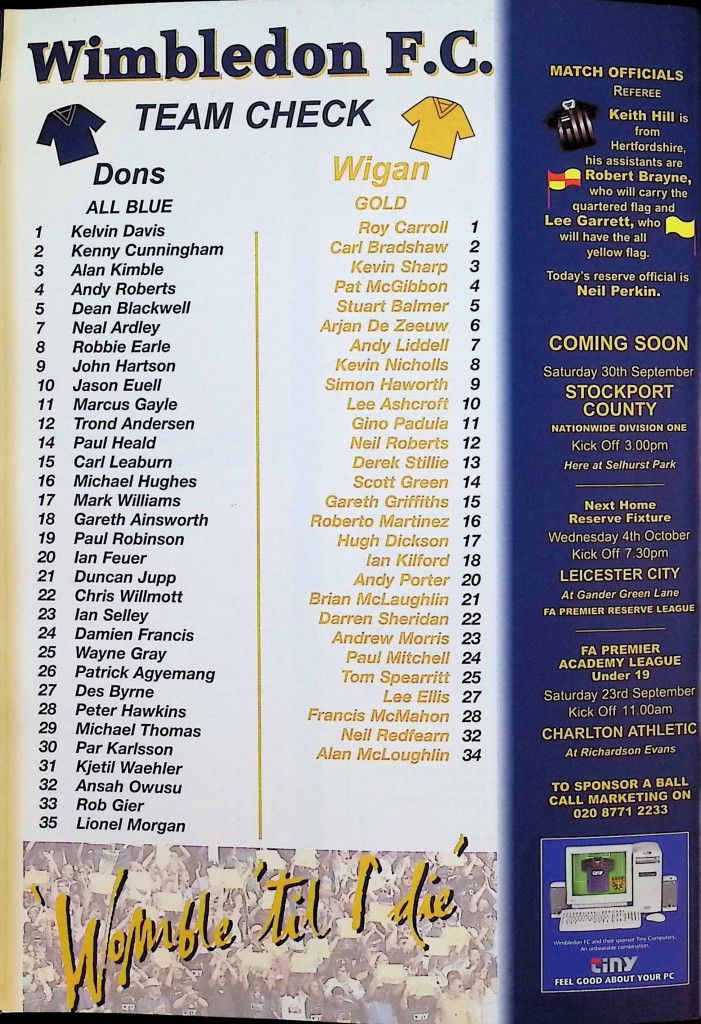 Wimbledon F.C.
TEAM CHECK
Dons
ALL BLUE
1 Kelvin Davis
2 Kenny Cunningham
3 Alan Kimble
4 Andy Roberts
5 Dean Blackwell
7 Neal Ardley
8 Robbie Earle
9 John Hartson
10 Jason Euell
11 Marcus Gayle
12 Trond Andersen
14 Paul Heald
15 Carl Leaburn
16 Michael Hughes
17 Mark Williams
18 Gareth Ainsworth
19 Paul Robinson
20 Ian Feuer
21 Duncan Jupp
22 Chris Willmott
23 Ian Selley
24 Damien Francis
25 Wayne Gray
26 Patrick Agyemang
27 Des Byrne
28 Peter Hawkins
29 Michael Thomas
30 Par Karlsson
31 Kjetil Waehler
32 Ansah Owusu
33 Rob Gier
35 Lionel Morgan
Wigan
GOLD
Roy Carroll 1
Carl Bradshaw 2
Kevin Sharp 3
Pat McGibbon 4
Stuart Balmer 5
Arjan De Zeeuw 6
Andy Liddell 7
Kevin Nicholls 8
Simon Haworth 9
Lee Ashcroft 10
Gino Padula 11
Neil Roberts 12
Derek Stillie 13
Scott Green 14
Gareth Griffiths 15
Roberto Martinez 16
Hugh Dickson 17
Ian Kilford 18
Andy Porter 20
Brian McLaughlin 21
Darren Sheridan 22
Andrew Morris 23
Paul Mitchell 24
Tom Spearritt 25
Lee Ellis 27
Francis McMahon 28
Neil Redfearn 32
Alan McLoughlin 34
'Womble 'til I die'
MATCH OFFICIALS
REFEREE
Keith Hill is
from
Hertfordshire,
his assistants are
Robert Brayne,
who will carry the
quartered flag and
Lee Garrett, who
will have the all
yellow flag.
Today's reserve official is
Neil Perkin.
COMING SOON
Saturday 30th September
STOCKPORT
COUNTY
NATIONWIDE DIVISION ONE
Kick Off 3.00pm
Here at Selhurst Park
Next Home
Reserve Fixture
Wednesday 4th October
Kick Off 7.30pm
LEICESTER CITY
At Gander Green Lane
FA PREMIER RESERVE LEAGUE
FA PREMIER
ACADEMY LEAGUE
Under 19
Saturday 23rd September
Kick Off 11.00am
CHARLTON ATHLETIC
At Richardson Evans
TO SPONSOR A BALL
CALL MARKETING ON
020 8771 2233
Wimbledon FC and their sponsor Tiny Computers.
An unbeatable combination.
tiny
FEEL GOOD ABOUT YOUR PC